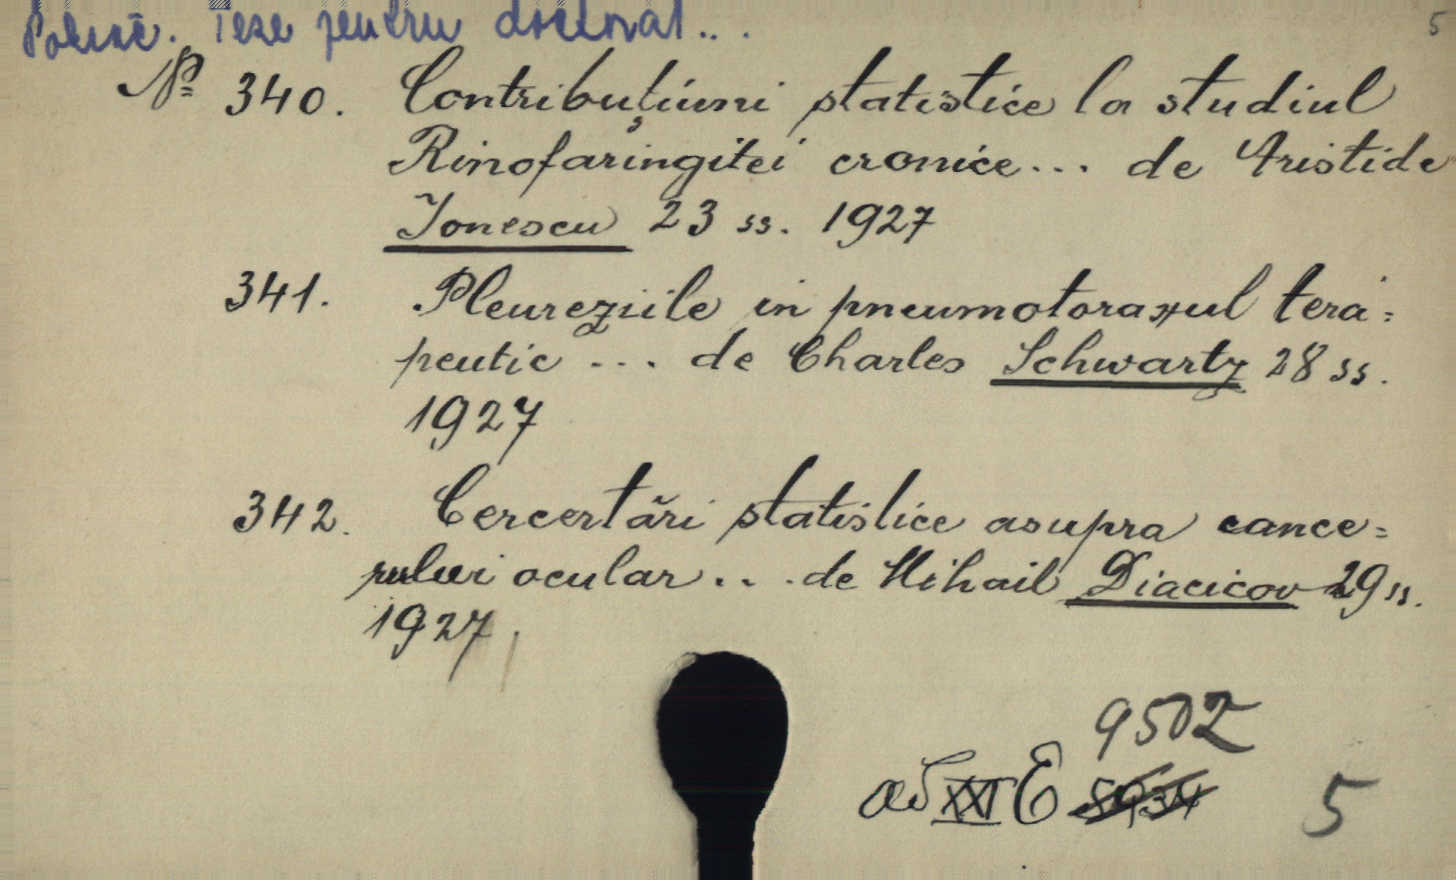 Teze pentru doctorat...
5
Nº 340. Contribuțiuni statistice la studiul
Rinofaringitei cronice... de Aristide
Ionescu 23 ss. 1927
341. Pleureziile in pneumotoraxul tera=
peutic ... de Charles Schwartz 28 ss.
1927
342. Cercertări statistice asupra cance=
rului ocular... de Mihail Diacicov 29 ss.
1927
9502
ad XXI E
5